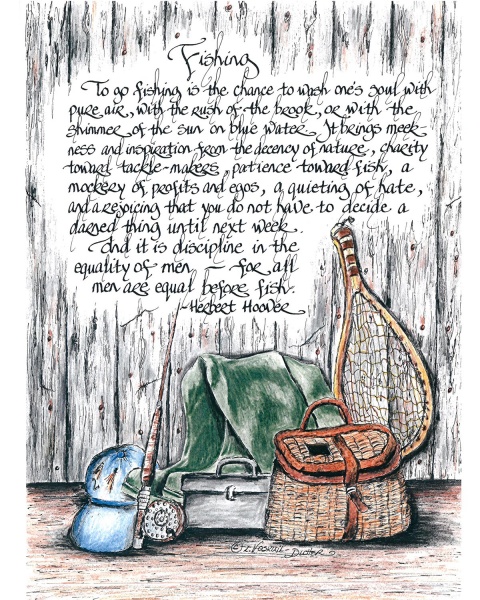 Fishing
To go fishing is the chance to wash one's soul with
pure air, with the rush of the brook, or with the
shimmer of the sun on blue water. It brings meek
ness and inspiration from the decency of nature, charity
toward tackle-makers, patience toward fish, a
mockery of profits and egos, a quieting of hate,
and a rejoicing that you do not have to decide a
darned thing until next week.
And it is discipline in the
equality of men — for all
men are equal before fish.
-Herbert Hoover
©